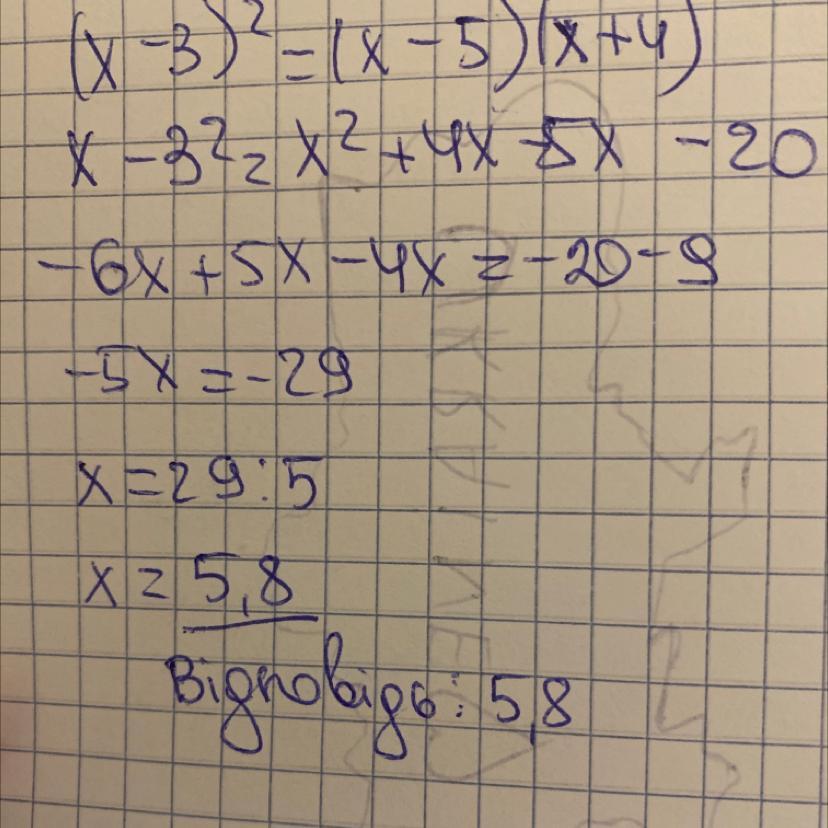 (x - 3)² = (x - 5)(x + 4)
x - 3² = x² + 4x - 5x - 20
-6x + 5x - 4x = -20 - 9
-5x = -29
x = 29 : 5
x = 5,8
Відповідь: 5,8